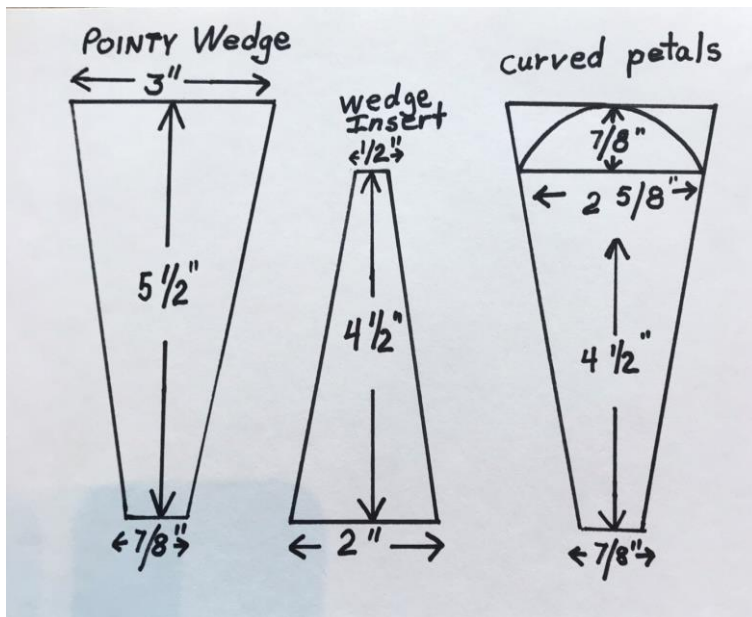 POINTY Wedge
3"
5 1/2"
7/8"
wedge
Insert
1/2"
4 1/2"
2"
curved petals
7/8"
2 5/8"
4 1/2"
7/8"